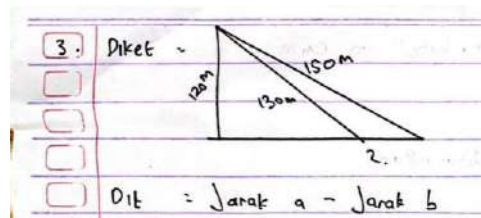 3. Diket =
150m
120m
130m
2.
Dit = Jarak a - Jarak b